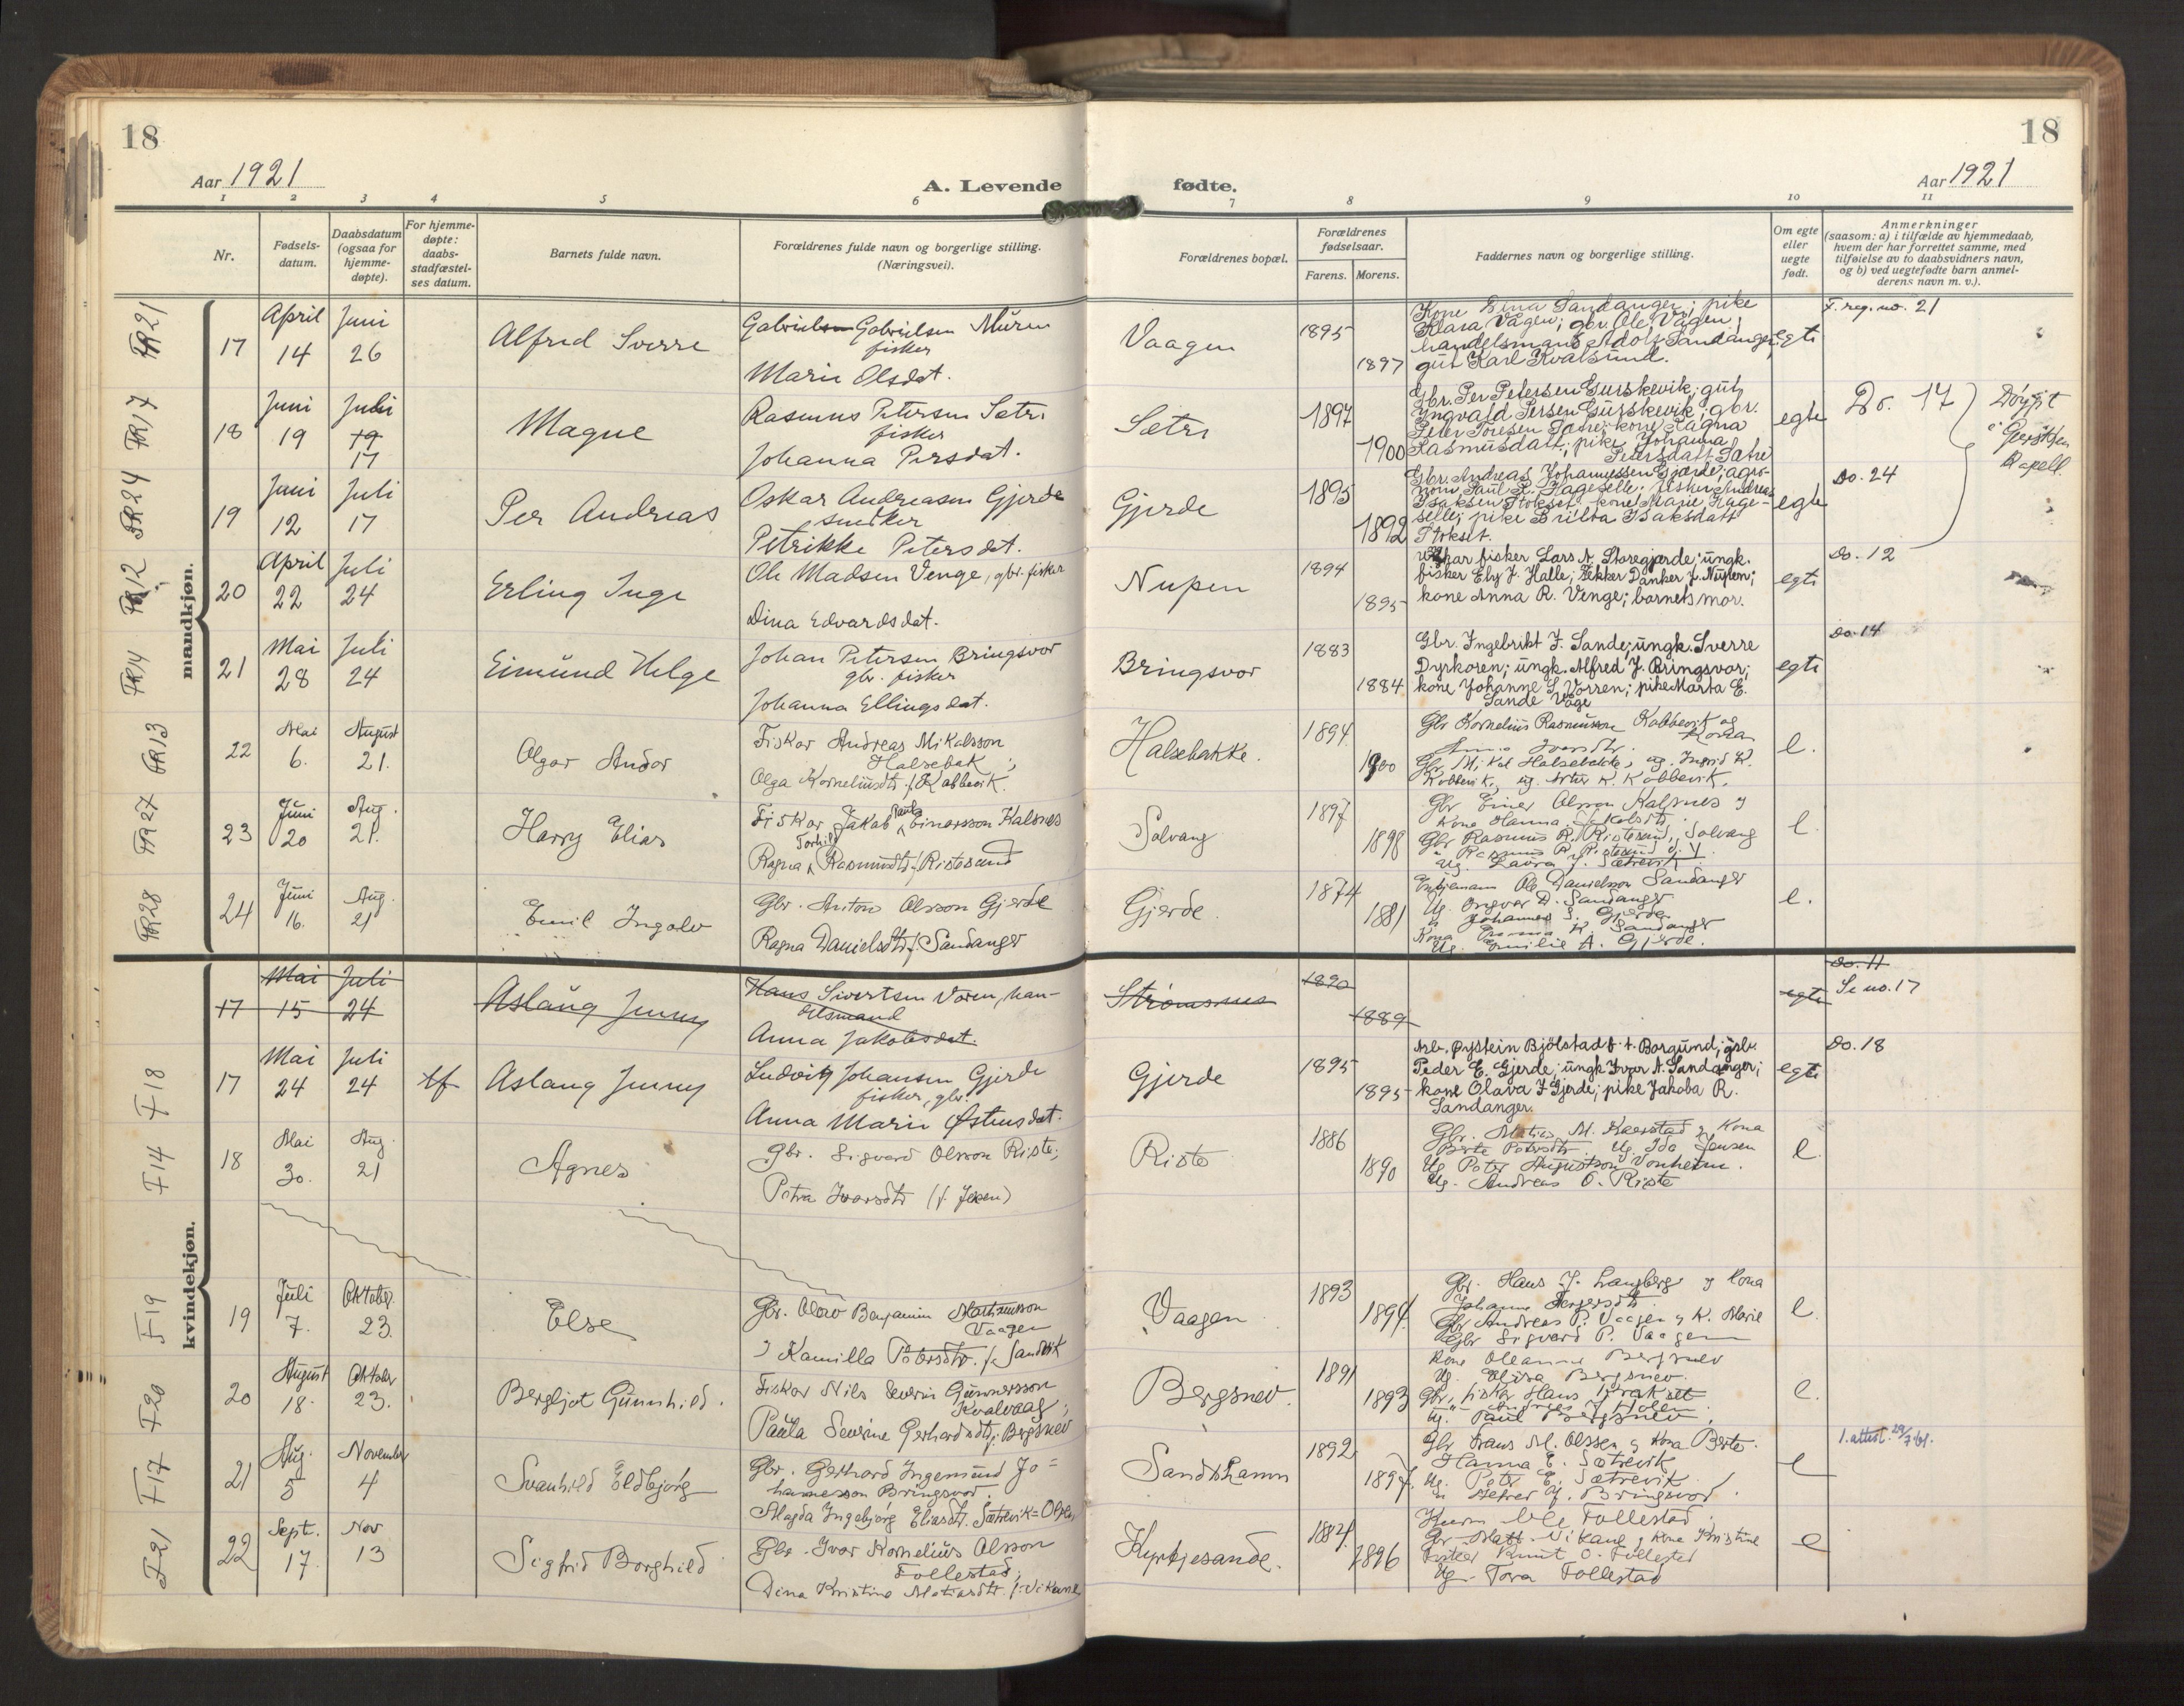 18
18
Aar 1921
A. Levende
fødte.
Aar 1921
1 2 3 4 5 6 7 8 9 10 11
Nr.
Fødsels-
datum.
Daabsdatum
(ogsaa for
hjemme-
døpte).
For hjemme-
døpte:
daabs-
stadfæstel-
ses datum.
Barnets fulde navn.
Forældrenes fulde navn og borgerlige stilling.
(Næringsvei).
Forældrenes bopæl.
Forældrenes
fødselsaar.
Farens. Morens.
Faddernes navn og borgerlige stilling.
Om egte
eller
uegte
født.
Anmerkninger
(saasom: a) i tilfælde av hjemmedaab,
hvem der har forrettet samme, med
tilføielse av to daabsvidners navn,
og b) ved uegtefødte barn anmel-
derens navn m. v.).
mandkjøn.
FR21
17
April 14
Juni 26
Alfred Sverre
Gabrielsen Gabrielsen Muren
fisker
Marie Olsdat.
Vaagen
1895
1897
Kone Lina Sandanger; pike
Klara Vågen; gbr. Ole Vågen;
handelsmand Adolf Sandanger;
gut Karl Kvalsund.
egte
F. reg. no. 21
FR17
18
Juni 19
Juli 19
17
Magne
Rasmus Petersen Sætre
fisker
Johanna Persdat.
Sætre
1897
1900
Gbr. Per Petersen Gurskevik; gut
Ingvald Persen Gurskevik; gbr.
Peter Toresen Sætre; kone Ragna
Rasmusdatt; pike Johanna
Petersdatt Sætre
egte
Do. 17
Døypt
i Gursken
Kapell
FR24
19
Juni 12
Juli 17
Per Andreas
Oskar Andreasen Gjerde
snedker
Petrikke Petersdat.
Gjerde
1895
1892
Gbr. Andreas Johannessen Gjærde; agro-
nom Paul K. Hageselle; fisker Andreas
Isaksen Stokset; kone Marie Hage-
selle; pike Brilta Isaksdatt
Stokset.
egte
Do. 24
FR12
20
April 22
Juli 24
Erling Inge
Ole Madsen Venge, gbr. fisker
Dina Edvardsdat.
Nupen
1894
1895
fisker Lars A. Storegjerde; ungk.
fisker Ely J. Halle; Danker J. Nupen;
kone Anna R. Venge; barnets mor.
egte
Do. 12
FR14
21
Mai 28
Juli 24
Eimund Helge
Johan Petersen Bringsvor
gbr. fisker
Johanna Ellingsdat.
Bringsvor
1883
1884
Gbr. Ingebrikt J. Sande; ungk. Sverre
Dyrkoren; ungk. Alfred J. Bringsvor;
kone Johanne S. Vorren; pike Marta E.
Sande Våge
egte
Do. 14
FR13
22
Mai 6.
August 21.
Olgar Andor
Fisker Andreas Mikalsson
Halsebak;
Olga Korneliusdtr. f. Kobbevik.
Halsebakke.
1894
1900
Gbr Kornelius Rasmusson Kobbevik og
Kona
Gbr. Mikal Halsebakke; ug. Ingrid K.
Kobbevik, ug. Artur K. Kobbevik.
e.
FR27
23
Juni 20
Aug. 21.
Harry Elias
Fisker Jakob Paul Einarsson Kalsnes
Ragna Torhild Rasmusdtr f. Ristesund
Solvang
1897
1898
Gbr Einer Olsson Kalsnes og
Kona Hanna Jakobsdtr.
Gbr Rasmus R. Ristesund, Solvang
Rasmus R. Ristesund d. y.
Ug. Laura J. Sætrevik.
e.
FR28
24
Juni 16.
Aug. 21
Emil Ingolv
Gbr. Anton Olsson Gjerde
Ragna Danielsdtr f. Sandanger
Gjerde.
1874
1881
Ole Danielsson Sandanger
Ug. Ingvar D. Sandanger
Johannes S. Gjerde.
Kona K. Sandanger
Ug. Emilie A. Gjerde.
e.
kvindekjøn.
17
Mai 15
Juli 24
Aslaug Jenny
Hans Sivertsen Voren, han-
delsmand
Anna Jakobsdat.
Strømsnes
1890
1889
egte
Do. 11
Se no. 17
F18
17
Mai 24
Juli 24
Aslaug Jenny
Ludvig Johansen Gjerde
fisker, gbr.
Anna Marie Østensdat.
Gjerde
1895
1895
Arb. Øystein Bjølstad f. t. Borgund; gbr.
Peder E. Gjerde; ungk Ivar A. Sandanger;
kone Olava J Gjerde; pike Jakoba R.
Sandanger.
egte
Do. 18
F14
18
Mai 30.
Aug. 21
Agnes
Gbr. Sigvard Olsson Riste;
Petra Ivarsdtr
Riste
1886
1890
Gbr. Matias M. Kaerstad og Kona
Berte Petersdtr Ug. Ida Jensen
Ug Peter Augustson Vonheim.
Ug. Andreas O. Riste
e.
F19
19
Juli 7.
Oktober. 23.
Else
Gbr. Olav Benjamin Mathiasson
Vaagen
Kamilla Petersdtr. f. Sandvik
Vaagen
1893
1894.
Gbr. Hans J. Langberg og Kona
Johanne
Gbr Andreas P. Vaagen og K. Marie
Gbr Sigvard P. Vaagen
e.
F20
20
August 18.
Oktober 23.
Bergljot Gunnhild.
Fisker Nils Severin Gunnersson
Kvalvaag;
Paula Severine Gerhardsdtr f. Bergsnev
Bergsnev.
1891
1893
Kone Oleanne Bergsnev
Ug. Elisa Bergsnev.
Gbr. fisker Hans
Ug. Paul Bergsnev.
e.
F17
21
Aug. 5
November 4
Svanhild Eldbjørg
Gbr. Gerhard Ingemund Jo=
hannesson Bringsvor.
Magda Ingebjørg Eliasdtr. Sætrevik
Sandshamn
1892
1897.
Gbr Frans M. Olssen og Kona Berte.
Hanna E. Sætrevik
Ug. Peter E. Sætrevik
Alfred J. Bringsvor.
e
1. attest. 29/7-61.
F21
22
Sept. 17.
Nov 13
Sigfrid Borghild
Gbr. Ivar Kornelius Olsson
Follestad;
Dina Kristine Matiasdtr. f. Vikane
Kyrkjesande.
1884.
1896
Ole Follestad.
Gbr Matt. Vikane og Kone Kristine
Fisker Knut O. Follestad
Ug. Tora Follestad
e